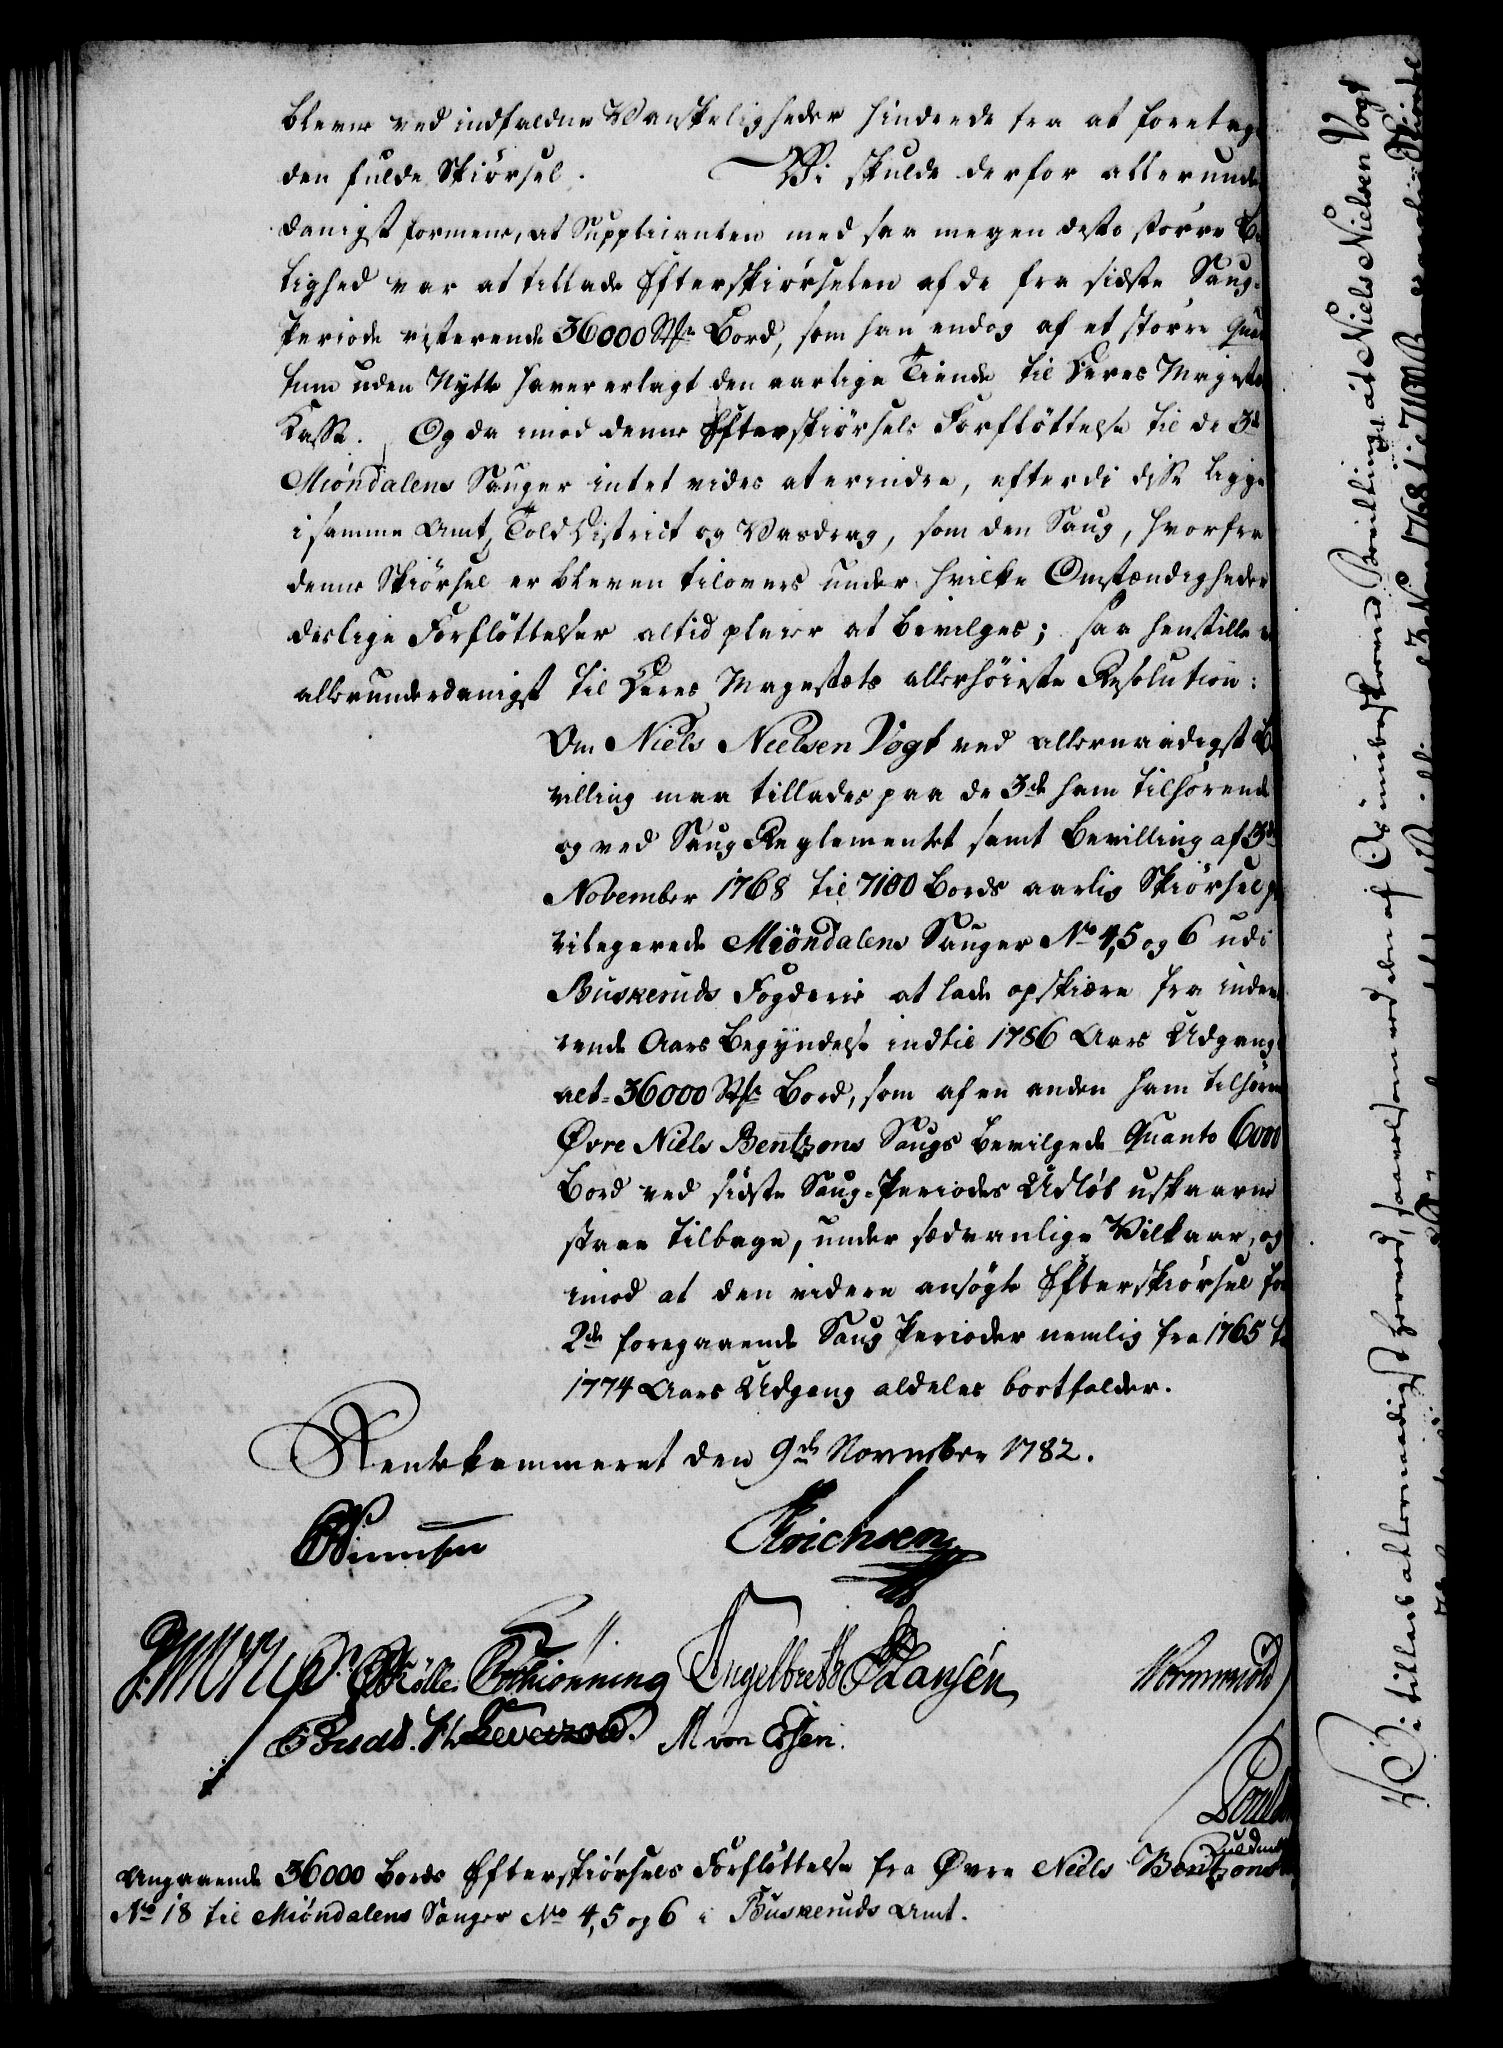 bleve ved indfaldne Vanskeligheder hindrede fra at foretage
den fulde Skiørsel. Vi skulde derfor allerunder
danigst formene, at Supplicanten med saa megen desto større Bil
lighed var at tillade Efterskiørselen af de fra sidste Saug-
Periode resterende 36000 Stk Bord, som han endog af et større Quan
tum uden Nytte haver erlagt den aarlige Tiende til Deres Majestæts
Kasse. Og da imod denne Efterskiørsels Forflöttelse til de 3de
Miöndalens Sauger intet vides at erindre, efterdi disse ligge
i samme Amt, Told District og Vasdrag, som den Saug, hvorfra
denne Skiørsel er bleven tilovers under hvilke Omstændigheder
deslige Forflöttelser altid pleier at bevilges; saa henstilles
allerunderdanigst til Deres Majestæts allerhöieste Resolution:
Om Niels Nielsen Vogt ved allernaadigst Be
villing maa tillades paa de 3de ham tilhørende
og ved Saug Reglementet samt Bevilling af 3de
November 1768 til 7100 Bords aarlig Skiørsel pri
vilegerede Miöndalens Sauger No 4, 5 og 6 udi
Buskeruds Fogderie at lade opskiære fra indevæ
rende Aars Begyndelse indtil 1786 Aars Udgang
alt 36000 Stk Bord, som af en anden ham tilhøren
Øvre Niels Bentzons Saugs bevilgede Quanto 6000
Bord ved sidste Saug-Periodes Udløb uskaarne
staae tilbage, under sædvanlige Vilkaar, og
imod at den videre ansøgte Efterskiørsel for
2de foregaaende Saug Perioder nemlig fra 1765 til
1774 Aars Udgang aldeles bortfalder.
Rentekammeret den 9de November 1782.
Erichsen
Schiönning Engelbreth Hansen Wormskiold
Leverzow. M von Essen.
Angaaende 36000 Bords Efterskiørsels Forflöttelse fra Øvre Niels Bentzons
No 18 til Miöndalens Sauger No 4, 5 og 6 i Buskeruds Amt.
Vi tillade allernaadigst herved, saavelsom ved eben af Os underskrevne Bevilling, at Niels Nielsen Vogt